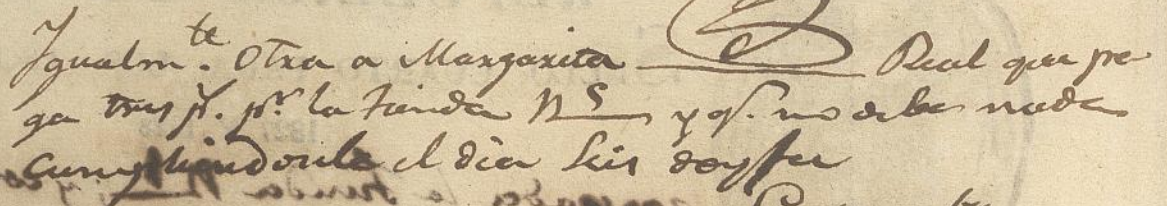 Igualm.te Otra a Margarita Real que pa
ga tres p.s p.r la tienda N.s y q.e no debe nada
cumpliendosele el dia seis de